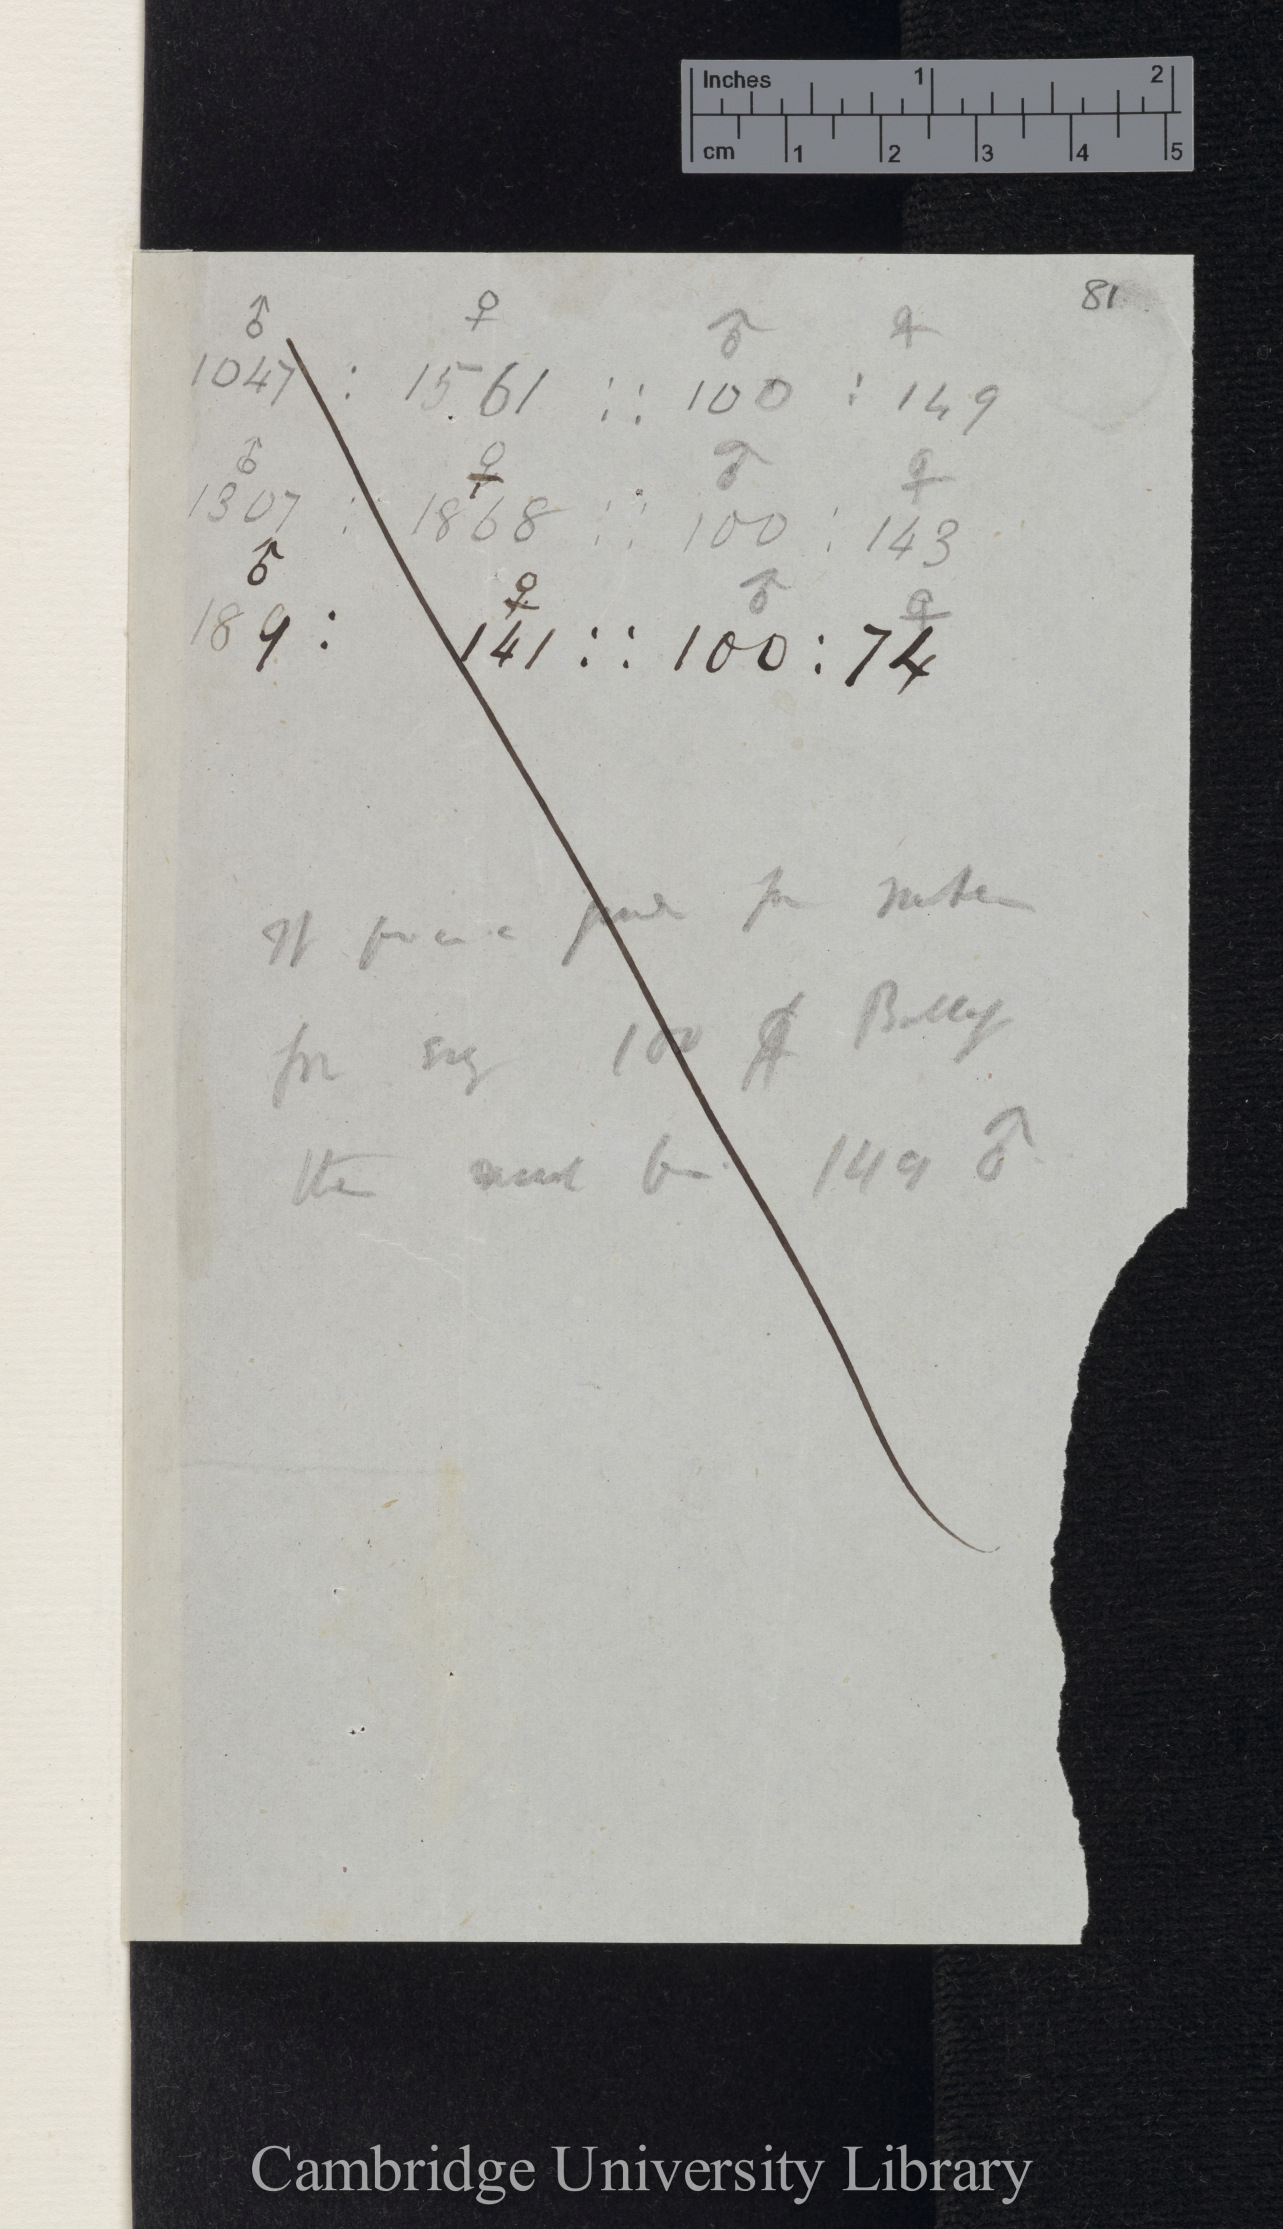 Inches 1 2
cm 1 2 3 4 5
81
♂ ♀ ♂ ♀
1047 : 1561 :: 100 : 149
♂ ♀ ♂ ♀
1307 : 1868 :: 100 : 143
♂ ♀ ♂ ♀
189 : 141 :: 100 : 74
If for
for say 100
must be 149 ♂
Cambridge University Library